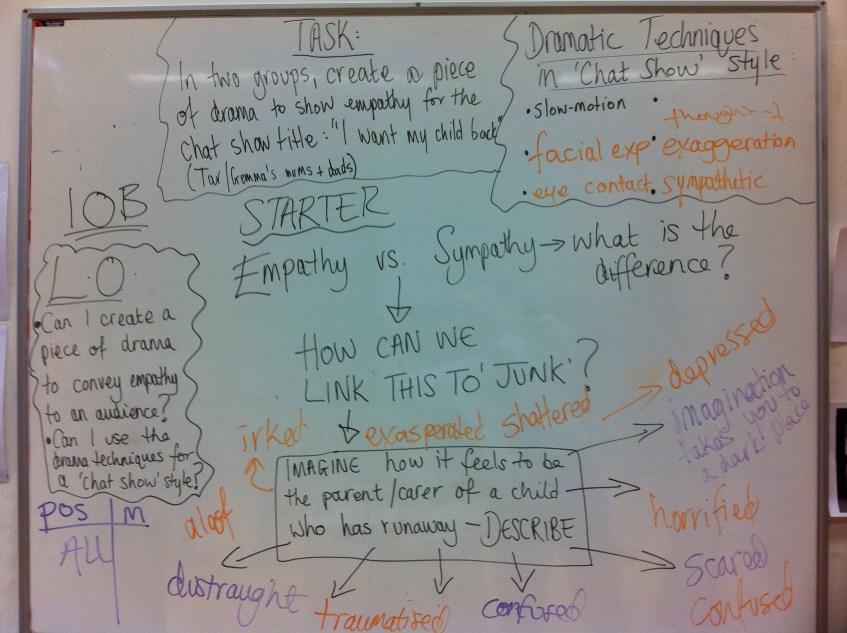 TASK:
In two groups, create a piece
of drama to show empathy for the
chat show title: "I want my child back"
(Tar/Gemma's mums + dads)
Dramatic Techniques
in 'Chat Show' style:
• slow-motion •
• facial exp • exaggeration
• eye contact • sympathetic
10B
L.O
• Can I create a
piece of drama
to convey empathy
to an audience?
• Can I use the
drama techniques for
a 'chat show' style?
POS M
ALL
STARTER
Empathy vs. Sympathy → what is the
difference?
HOW CAN WE
LINK THIS TO 'JUNK'?
irked exasperated shattered depressed
imagination
takes you to
a dark place
IMAGINE how it feels to be
the parent/carer of a child
who has runaway - DESCRIBE
aloof
horrified
distraught
traumatised
confused
scared
confused